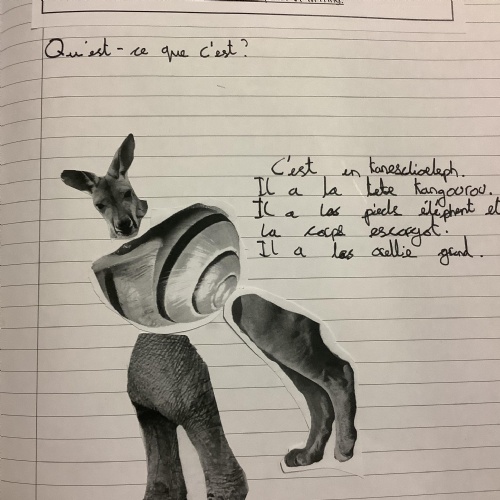 Qu'est-ce que c'est?
C'est en kanesclioeleph.
Il a la tete kangourou.
Il a las pieds éléphent et
la corps escargot.
Il a las orellie grand.